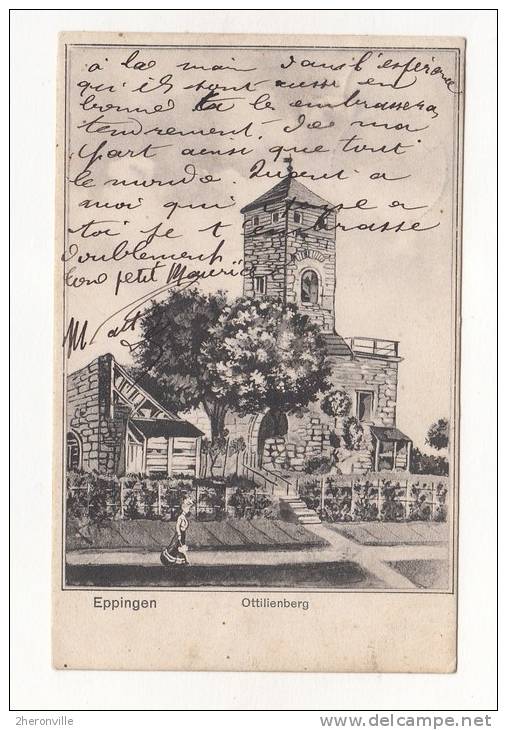 à la main dans l'espérance
qu'ils sont aussi en
bonne la le embrassera
tendrement. De ma
part ainsi que tout
le monde. Quent a
moi qui pense a
toi je t embrasse
doublement
ton petit Maurice
M
Eppingen Ottilienberg
2heronville
http://www.delcampe.net